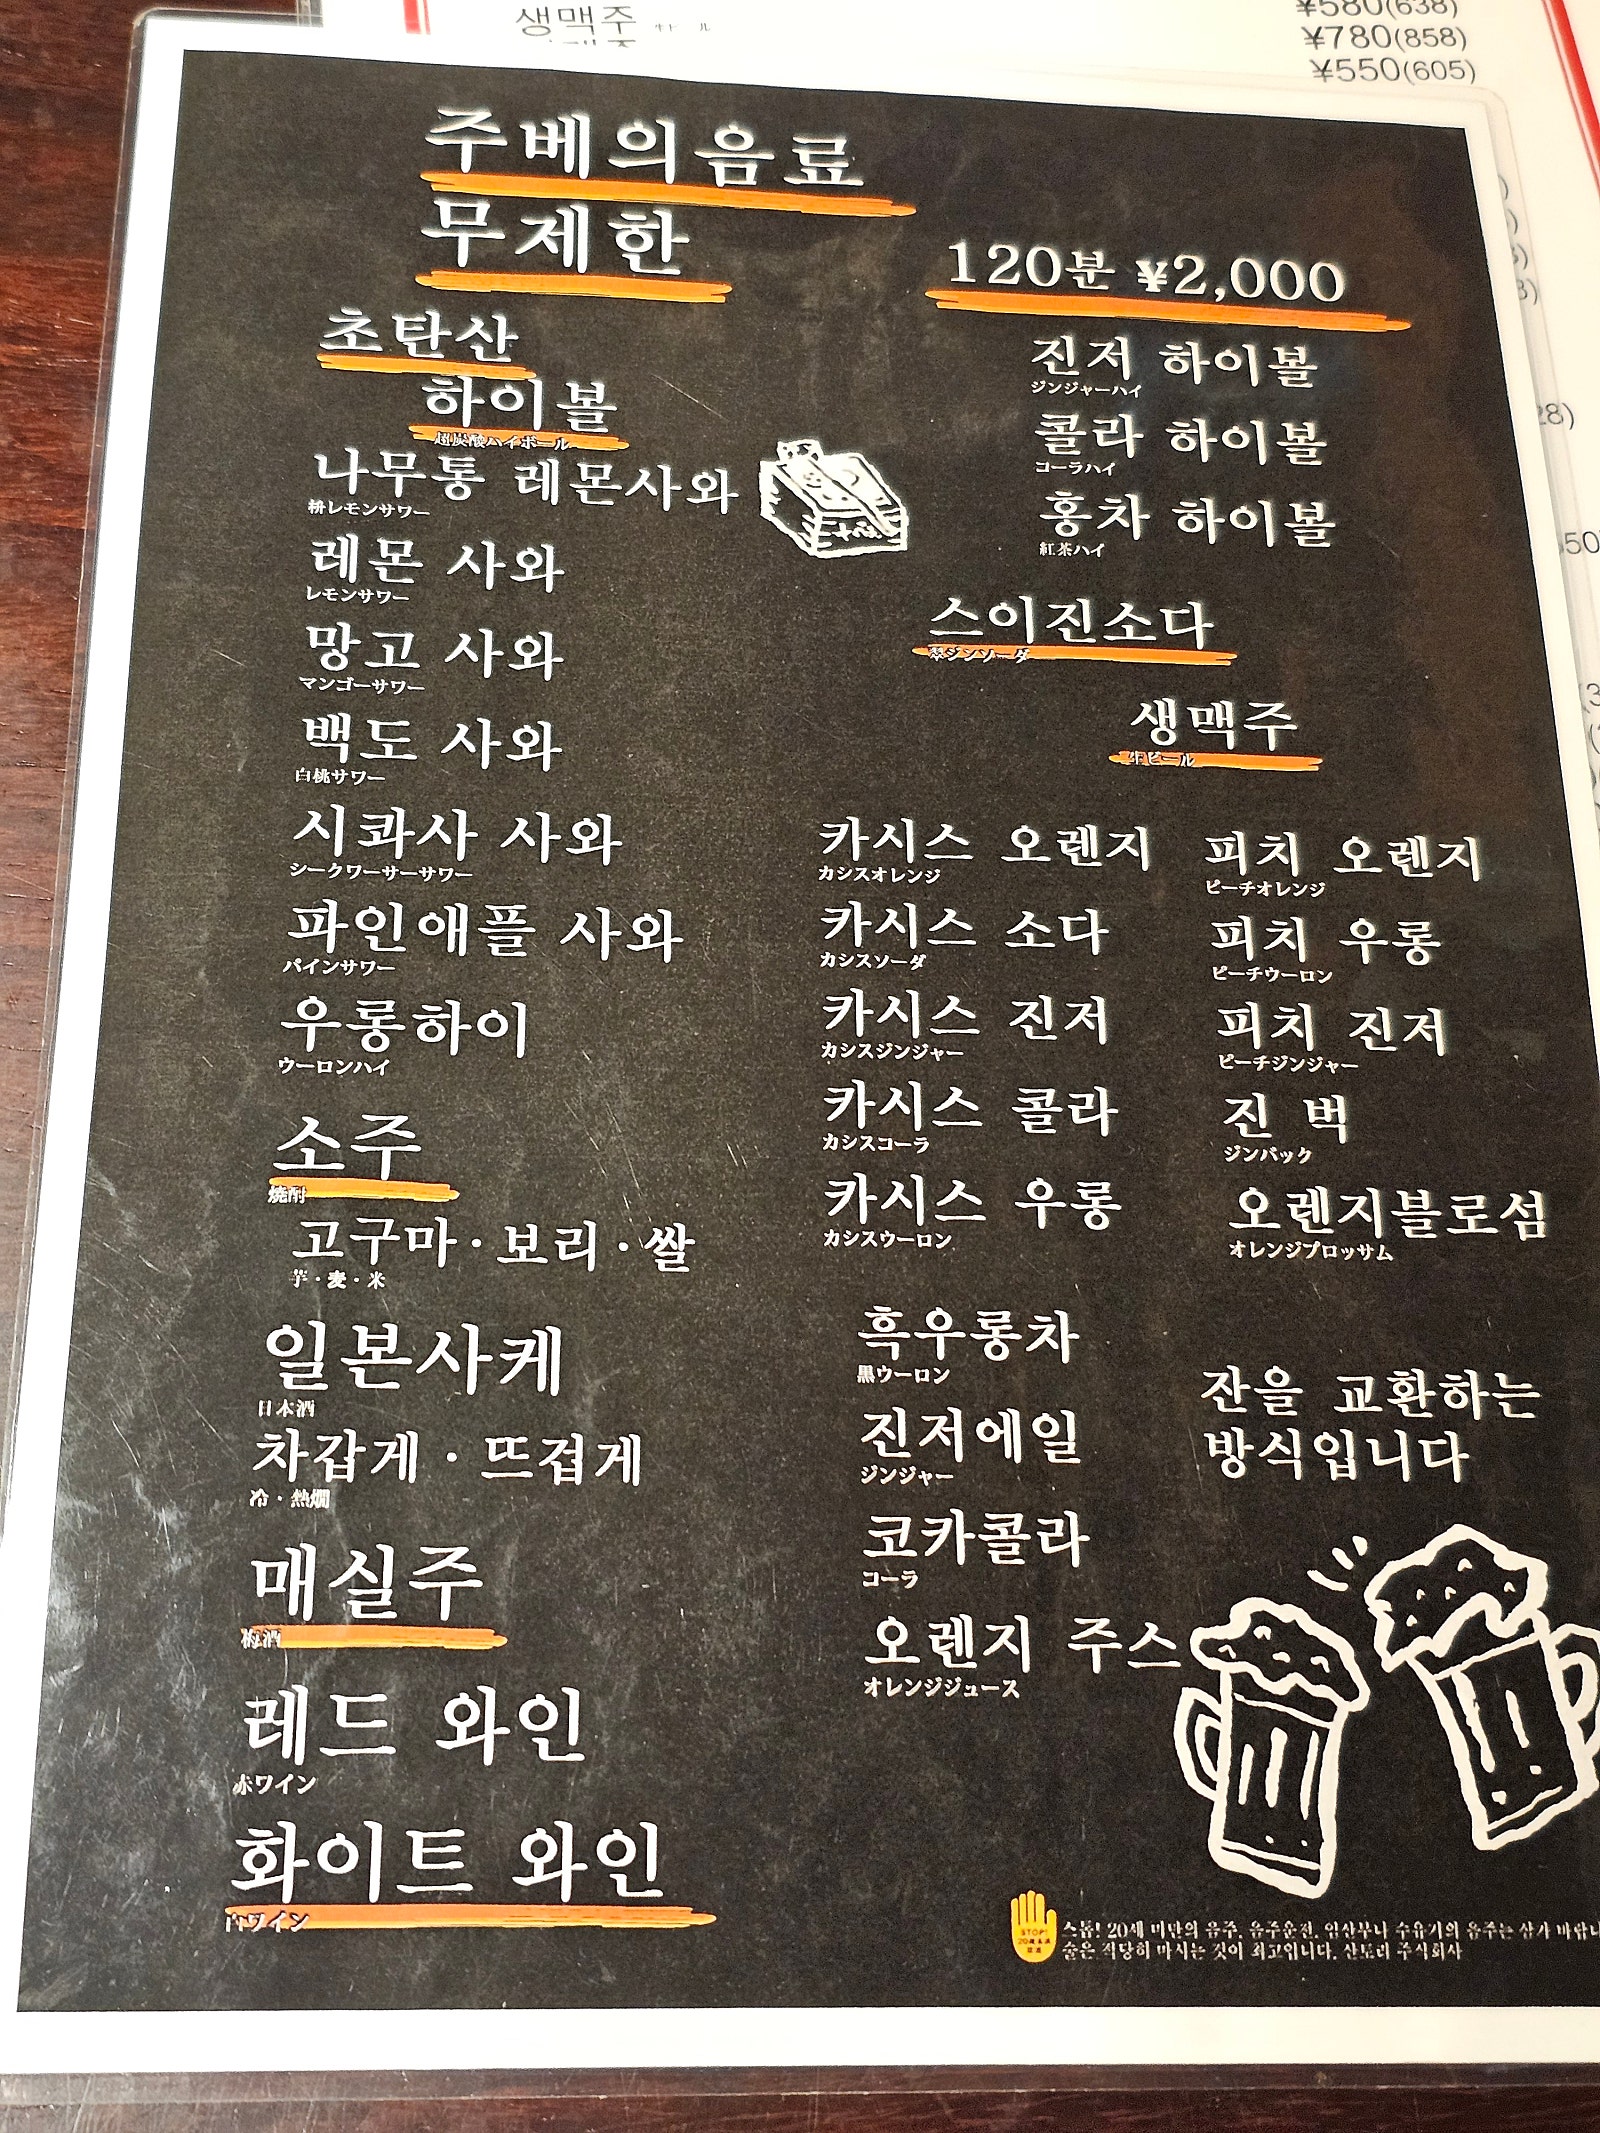 생맥주
¥580(638)
¥780(858)
¥550(605)
주베의음료
무제한
120분 ¥2,000
초탄산
하이볼
超炭酸ハイボール
나무통 레몬사와
耕レモンサワー
레몬 사와
レモンサワー
망고 사와
マンゴーサワー
백도 사와
白桃サワー
시콰사 사와
シークワーサーサワー
파인애플 사와
パインサワー
우롱하이
ウーロンハイ
소주
焼酎
고구마·보리·쌀
芋・麦・米
일본사케
日本酒
차갑게·뜨겁게
冷・熱燗
매실주
梅酒
레드 와인
赤ワイン
화이트 와인
白ワイン
진저 하이볼
ジンジャーハイ
콜라 하이볼
コーラハイ
홍차 하이볼
紅茶ハイ
스이진소다
翠ジンソーダ
생맥주
生ビール
카시스 오렌지
カシスオレンジ
카시스 소다
カシスソーダ
카시스 진저
カシスジンジャー
카시스 콜라
カシスコーラ
카시스 우롱
カシスウーロン
피치 오렌지
ピーチオレンジ
피치 우롱
ピーチウーロン
피치 진저
ピーチジンジャー
진 벅
ジンバック
오렌지블로섬
オレンジブロッサム
흑우롱차
黒ウーロン
진저에일
ジンジャー
코카콜라
コーラ
오렌지 주스
オレンジジュース
잔을 교환하는
방식입니다
STOP!
스톱! 20세 미만의 음주. 음주운전. 임산부나 수유기의 음주는 삼가 바랍니
술은 적당히 마시는 것이 최고입니다. 산토리 주식회사